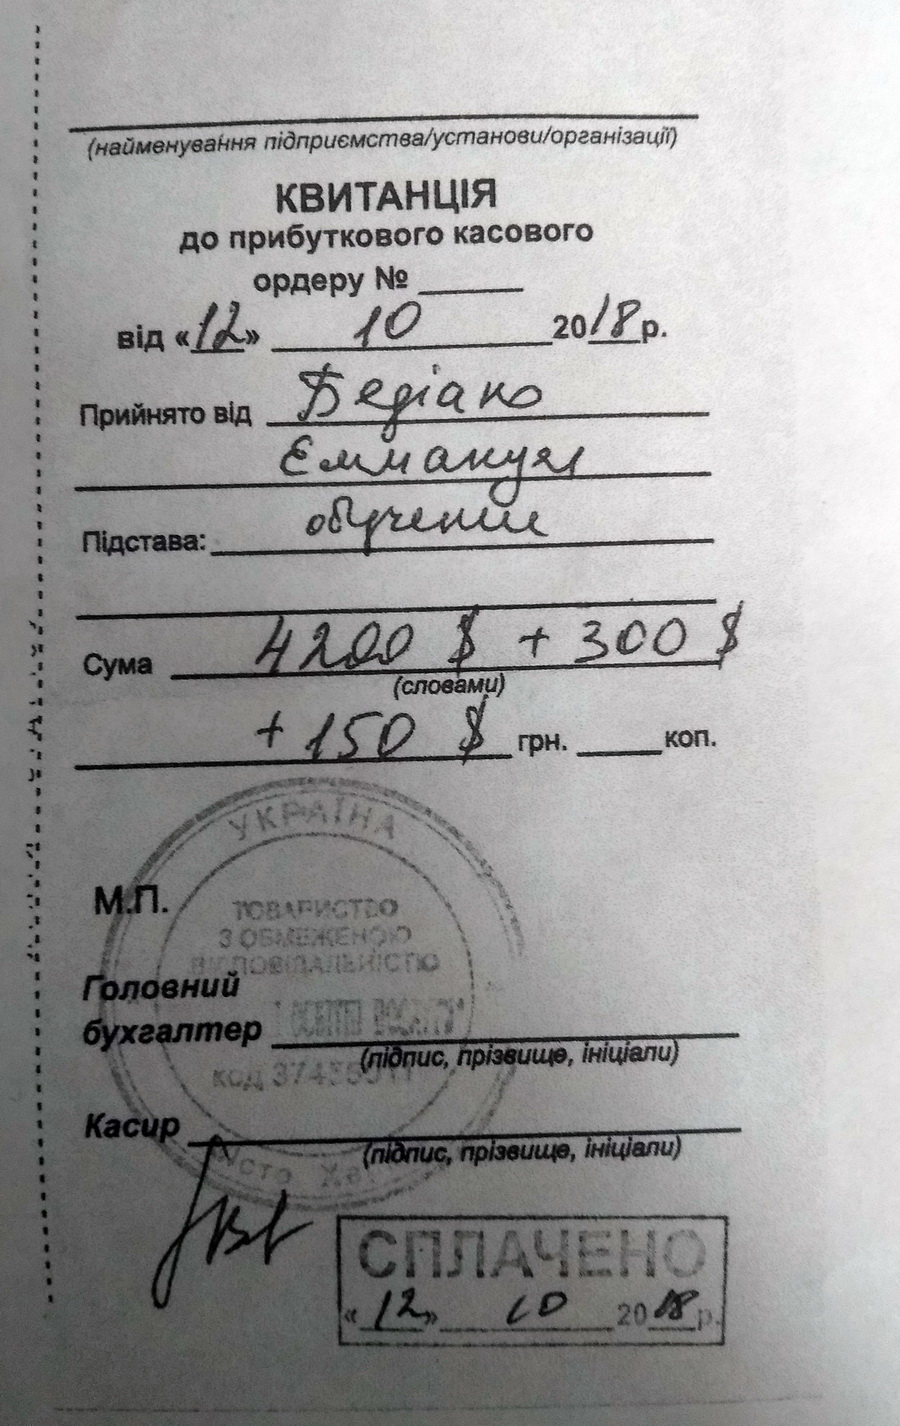 (найменування підприємства/установи/організації)
КВИТАНЦІЯ
до прибуткового касового
ордеру № ______
від «12» 10 2018 р.
Прийнято від Бедіако
Еммануел
Підстава: обучение
Сума 4200 $ + 300 $
(словами)
+ 150 $ грн. _____ коп.
УКРАЇНА
М.П.
ТОВАРИСТВО
З ОБМЕЖЕНОЮ
ВІДПОВІДАЛЬНІСТЮ
Головний
бухгалтер
(підпис, прізвище, ініціали)
код
Касир
(підпис, прізвище, ініціали)
СПЛАЧЕНО
«12» 10 2018 р.